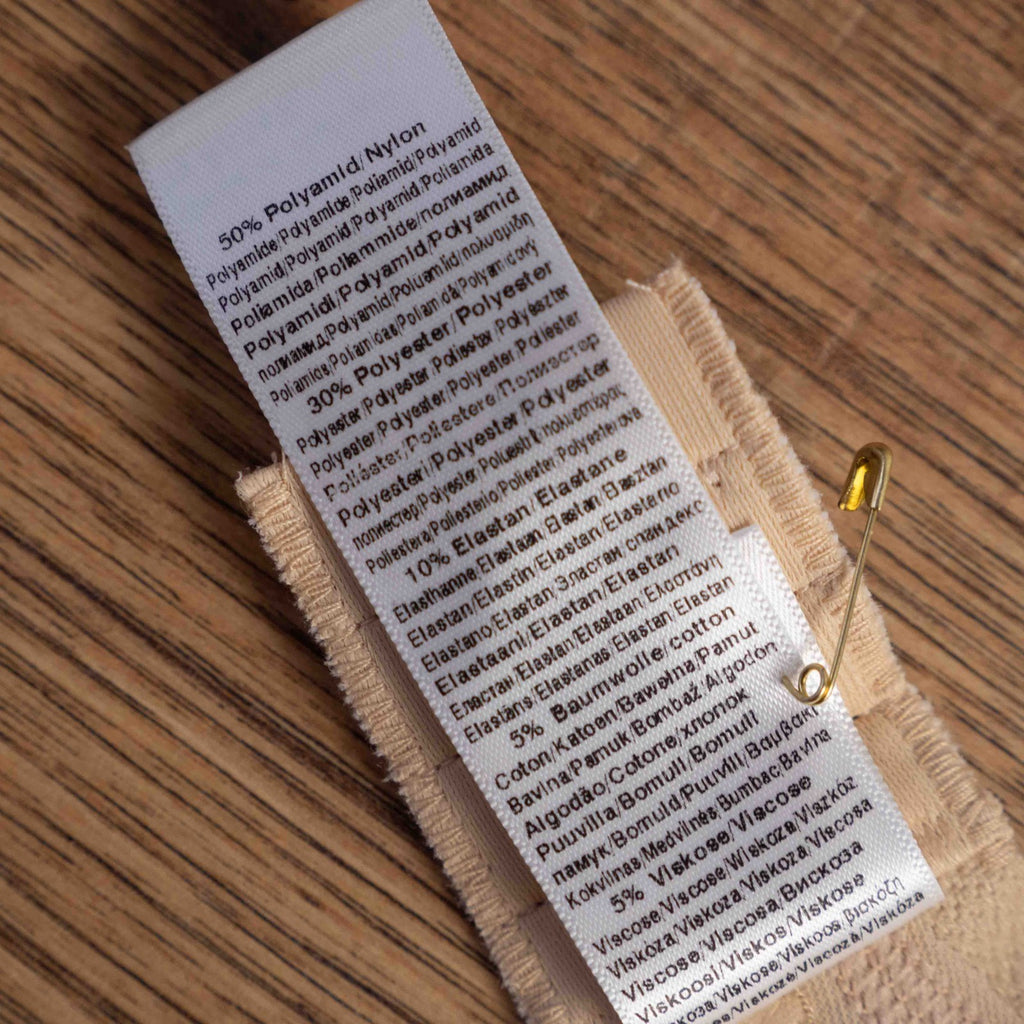 50% Polyamid/Nylon
Polyamide/Polyamide/Poliamid/Polyamid
Polyamid/Polyamid/Polyamid/Poliamida
Poliamida/Poliammide/полиамид
Polyamidi/Polyamid/Polyamid
полиамид/Polyamid/Poluamiid/πολυαμίδη
Poliamīds/Poliamidas/Poliamidă/Polyamidový
30% Polyester/Polyester
Polyester/Polyester/Poliester/Polyészter
Polyester/Polyester/Polyester/Poliester
Poliéster/Poliestere/Полиэстер
Polyesteri/Polyester/Polyester
полиестер/Polyester/Polüestrit/πολυεστέρας
Poliestera/Poliesterio/Poliester/Polyesterová
10% Elastan/Elastane
Elasthanne/Elastaan/Elastan/Elasztán
Elastan/Elastin/Elastan/Elastano
Elastano/Elastan/Эластан, спандекс
Elastaani/Elastan/Elastan
Еластан/Elastan/Elastaan/Ελαστάνη
Elastāns/Elastanas/Elastan/Elastan
5% Baumwolle/cotton
Coton/Katoen/Bawełna/Pamut
Bavlna/Pamuk/Bombaž/Algodon
Algodão/Cotone/хлопок
Puuvilla/Bomull/Bomull
памук/Bomuld/Puuvill/Βαμβάκι
Kokvilnas/Medvilnės/Bumbac/Bavlna
5% Viskose/Viscose
Viscose/Viscose/Wiskoza/Viszkóz
Viskóza/Viskoza/Viskoza/Viscosa
Viscose/Viscosa/Вискоза
Viskoosi/Viskos/Viskose
Viskose/Viskoos/βισκόζη
Viscoza/Viskóza